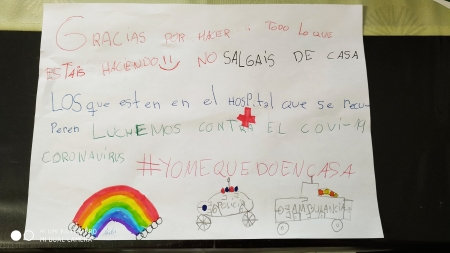 GRACIAS POR HACER TODO LO QUE
ESTAIS HACIENDO!! NO SALGAIS DE CASA
LOS que esten en el HOSPITAL que se recu-
peren LUCHEMOS CONTRA EL COVI-19
CORONAVIRUS #YOMEQUEDOENCASA
POLICIA
AMBULANCIA
AI DUAL CAMERA